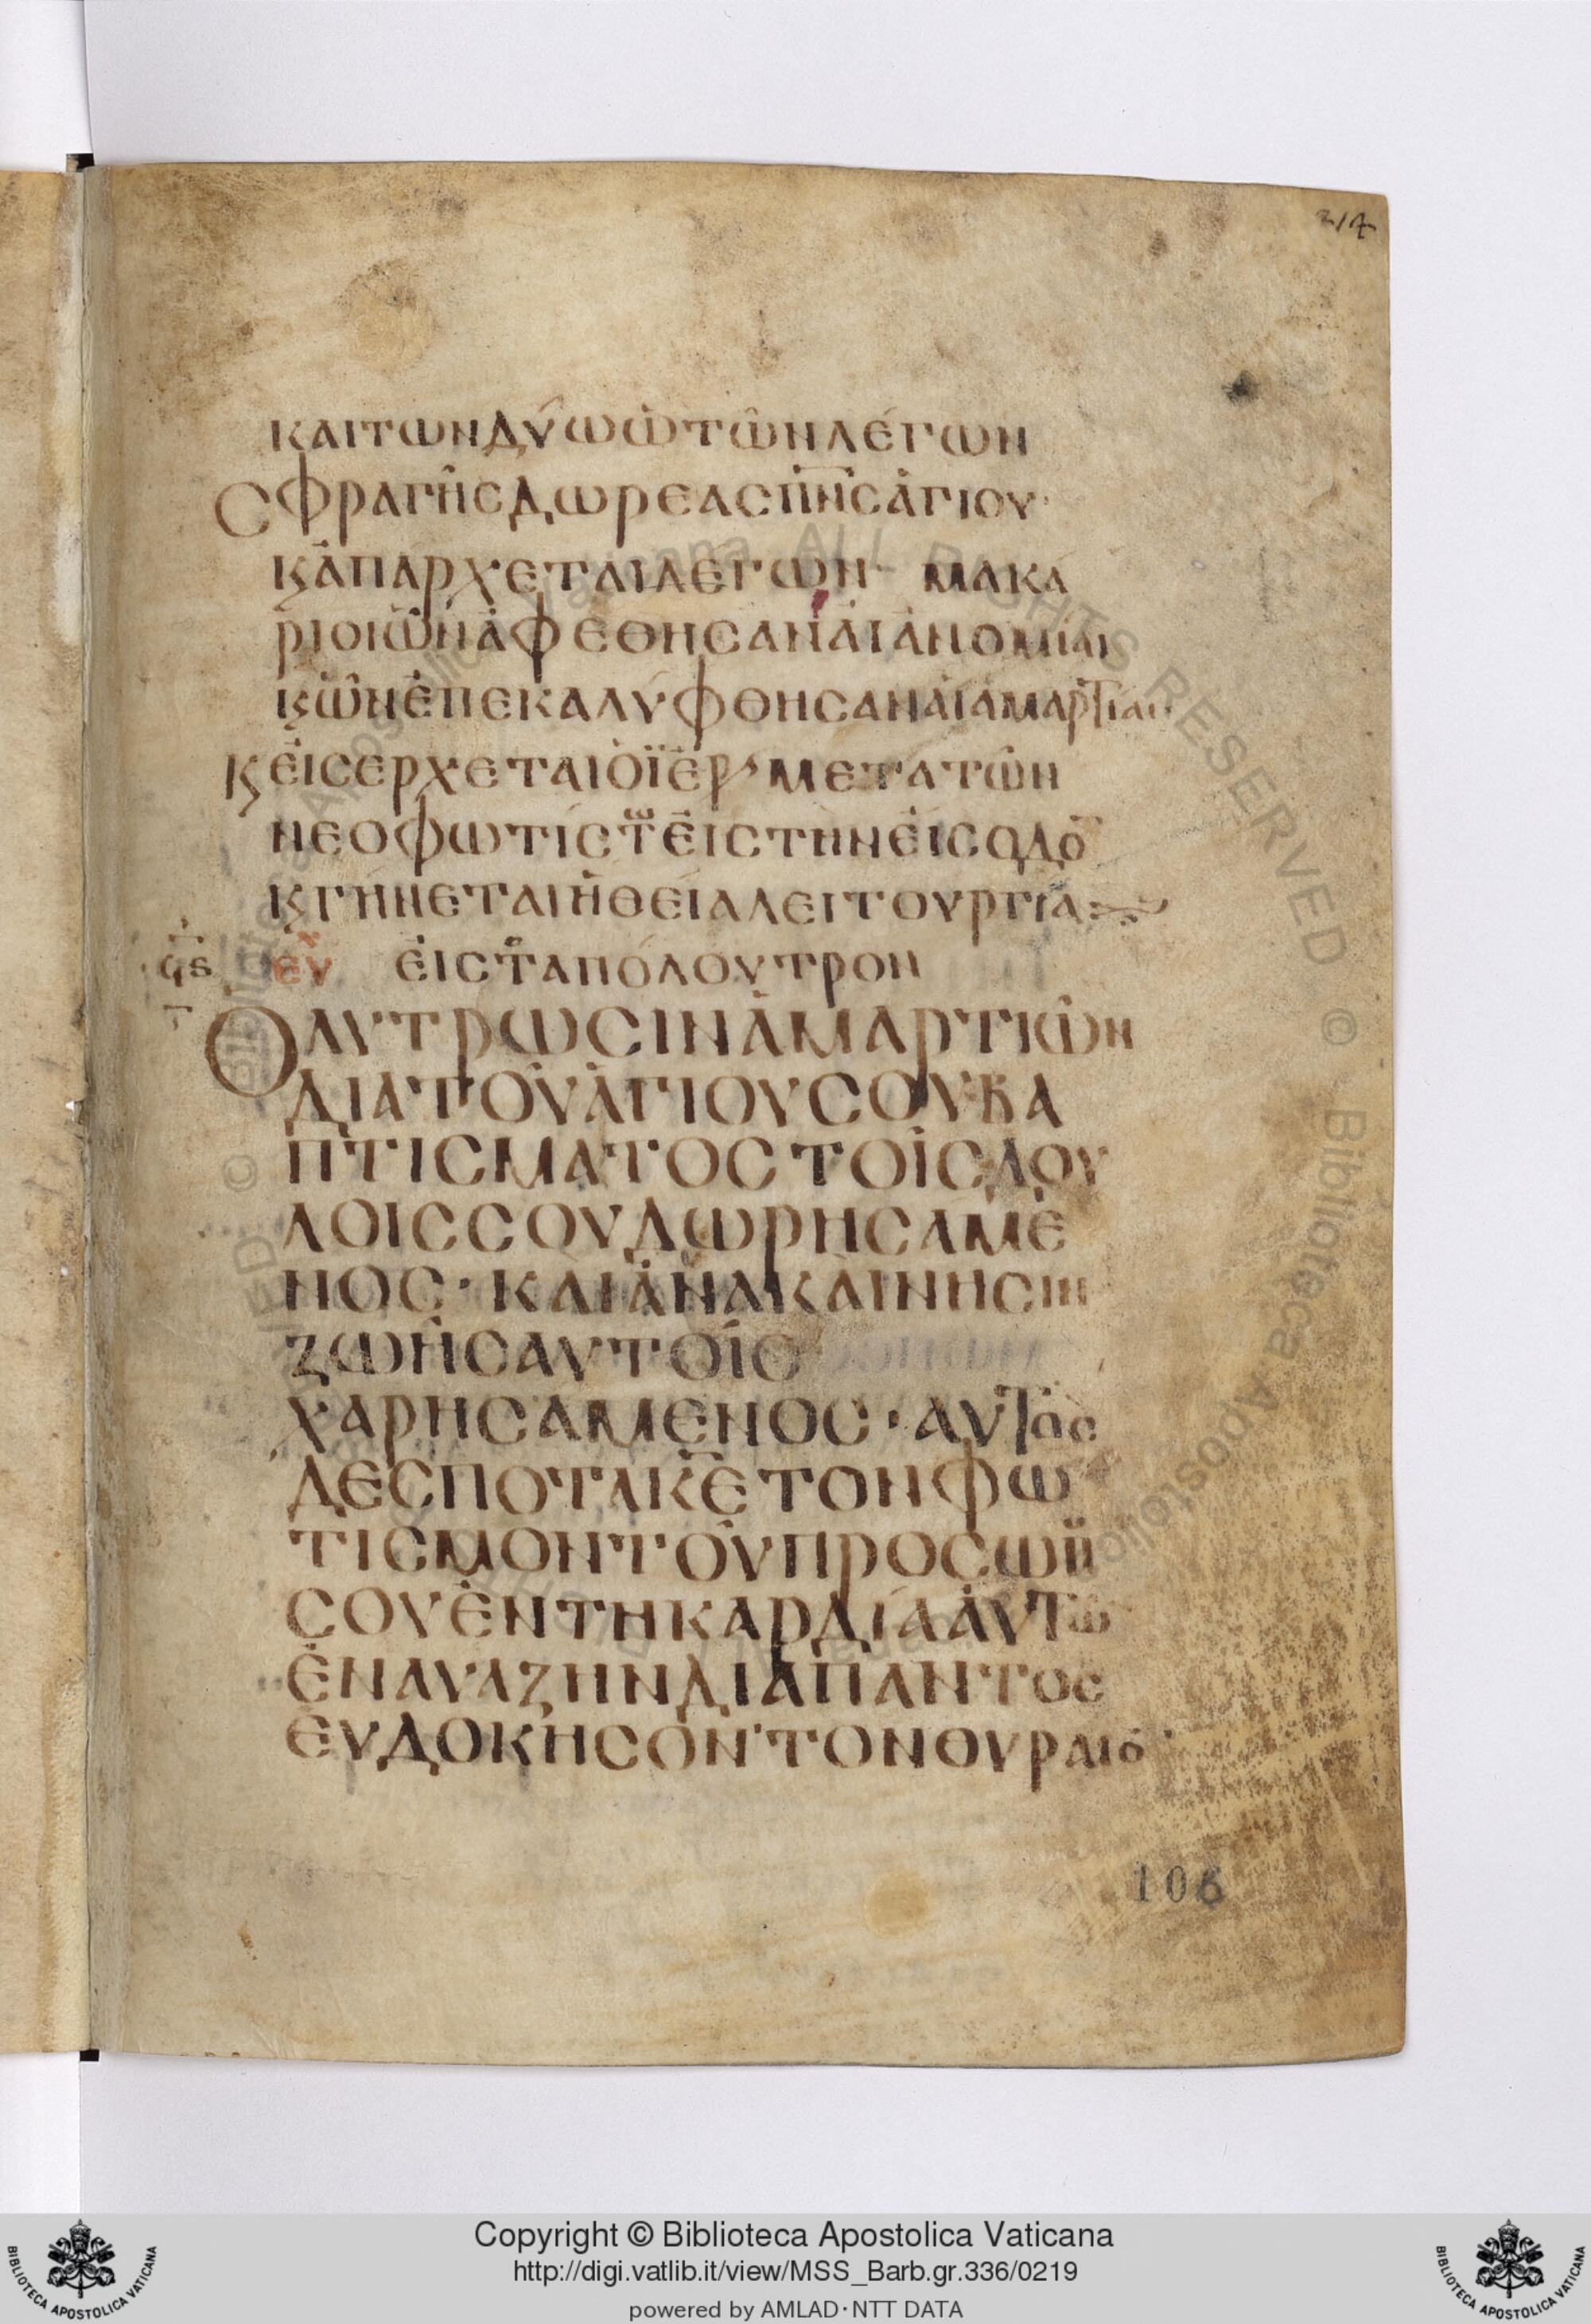 214
καιτωνδύωὠτῶνλέγων
Cφραγῆςδωρεαςπ̅ν̅ςἁγίου·
κἀπάρχεταιλέγων· μακά
ριοιὧνἀφέθησανἁιἀνομίαι
κὧνἐπεκαλύφθησανἁιἁμαρτίαι
κἐισερχεταιὁϊἑρ, μετατῶν
νεοφωτίστ̅ἐιστηνἐισοδο̅
κγήνεταιἡθείαλειτουργία
ϙϛ εὐ ἐιςτ̅απόλουτρον
Ὁλυτρωσινἁμαρτιῶν
διατοῦἁγίουσουβα
πτίσματοςτοῖςδου
λοιςσουδωρησάμε
νος· καιἀνακαίνησιν
ζωῆςαυτοῖς
χαρησάμενος· αυτὸς
δέσποτακ̅ε̅τονφω
τισμοντοῦπροσώπ
σουἐντηκαρδίααὐτω̅
ἐναυάζηνδιαπαντος
ἐυδοκησον· τονθυραιο̅
106
Copyright © Biblioteca Apostolica Vaticana
http://digi.vatlib.it/view/MSS_Barb.gr.336/0219
powered by AMLAD·NTT DATA
BIBLIOTECA APOSTOLICA VATICANA
BIBLIOTECA APOSTOLICA VATICANA